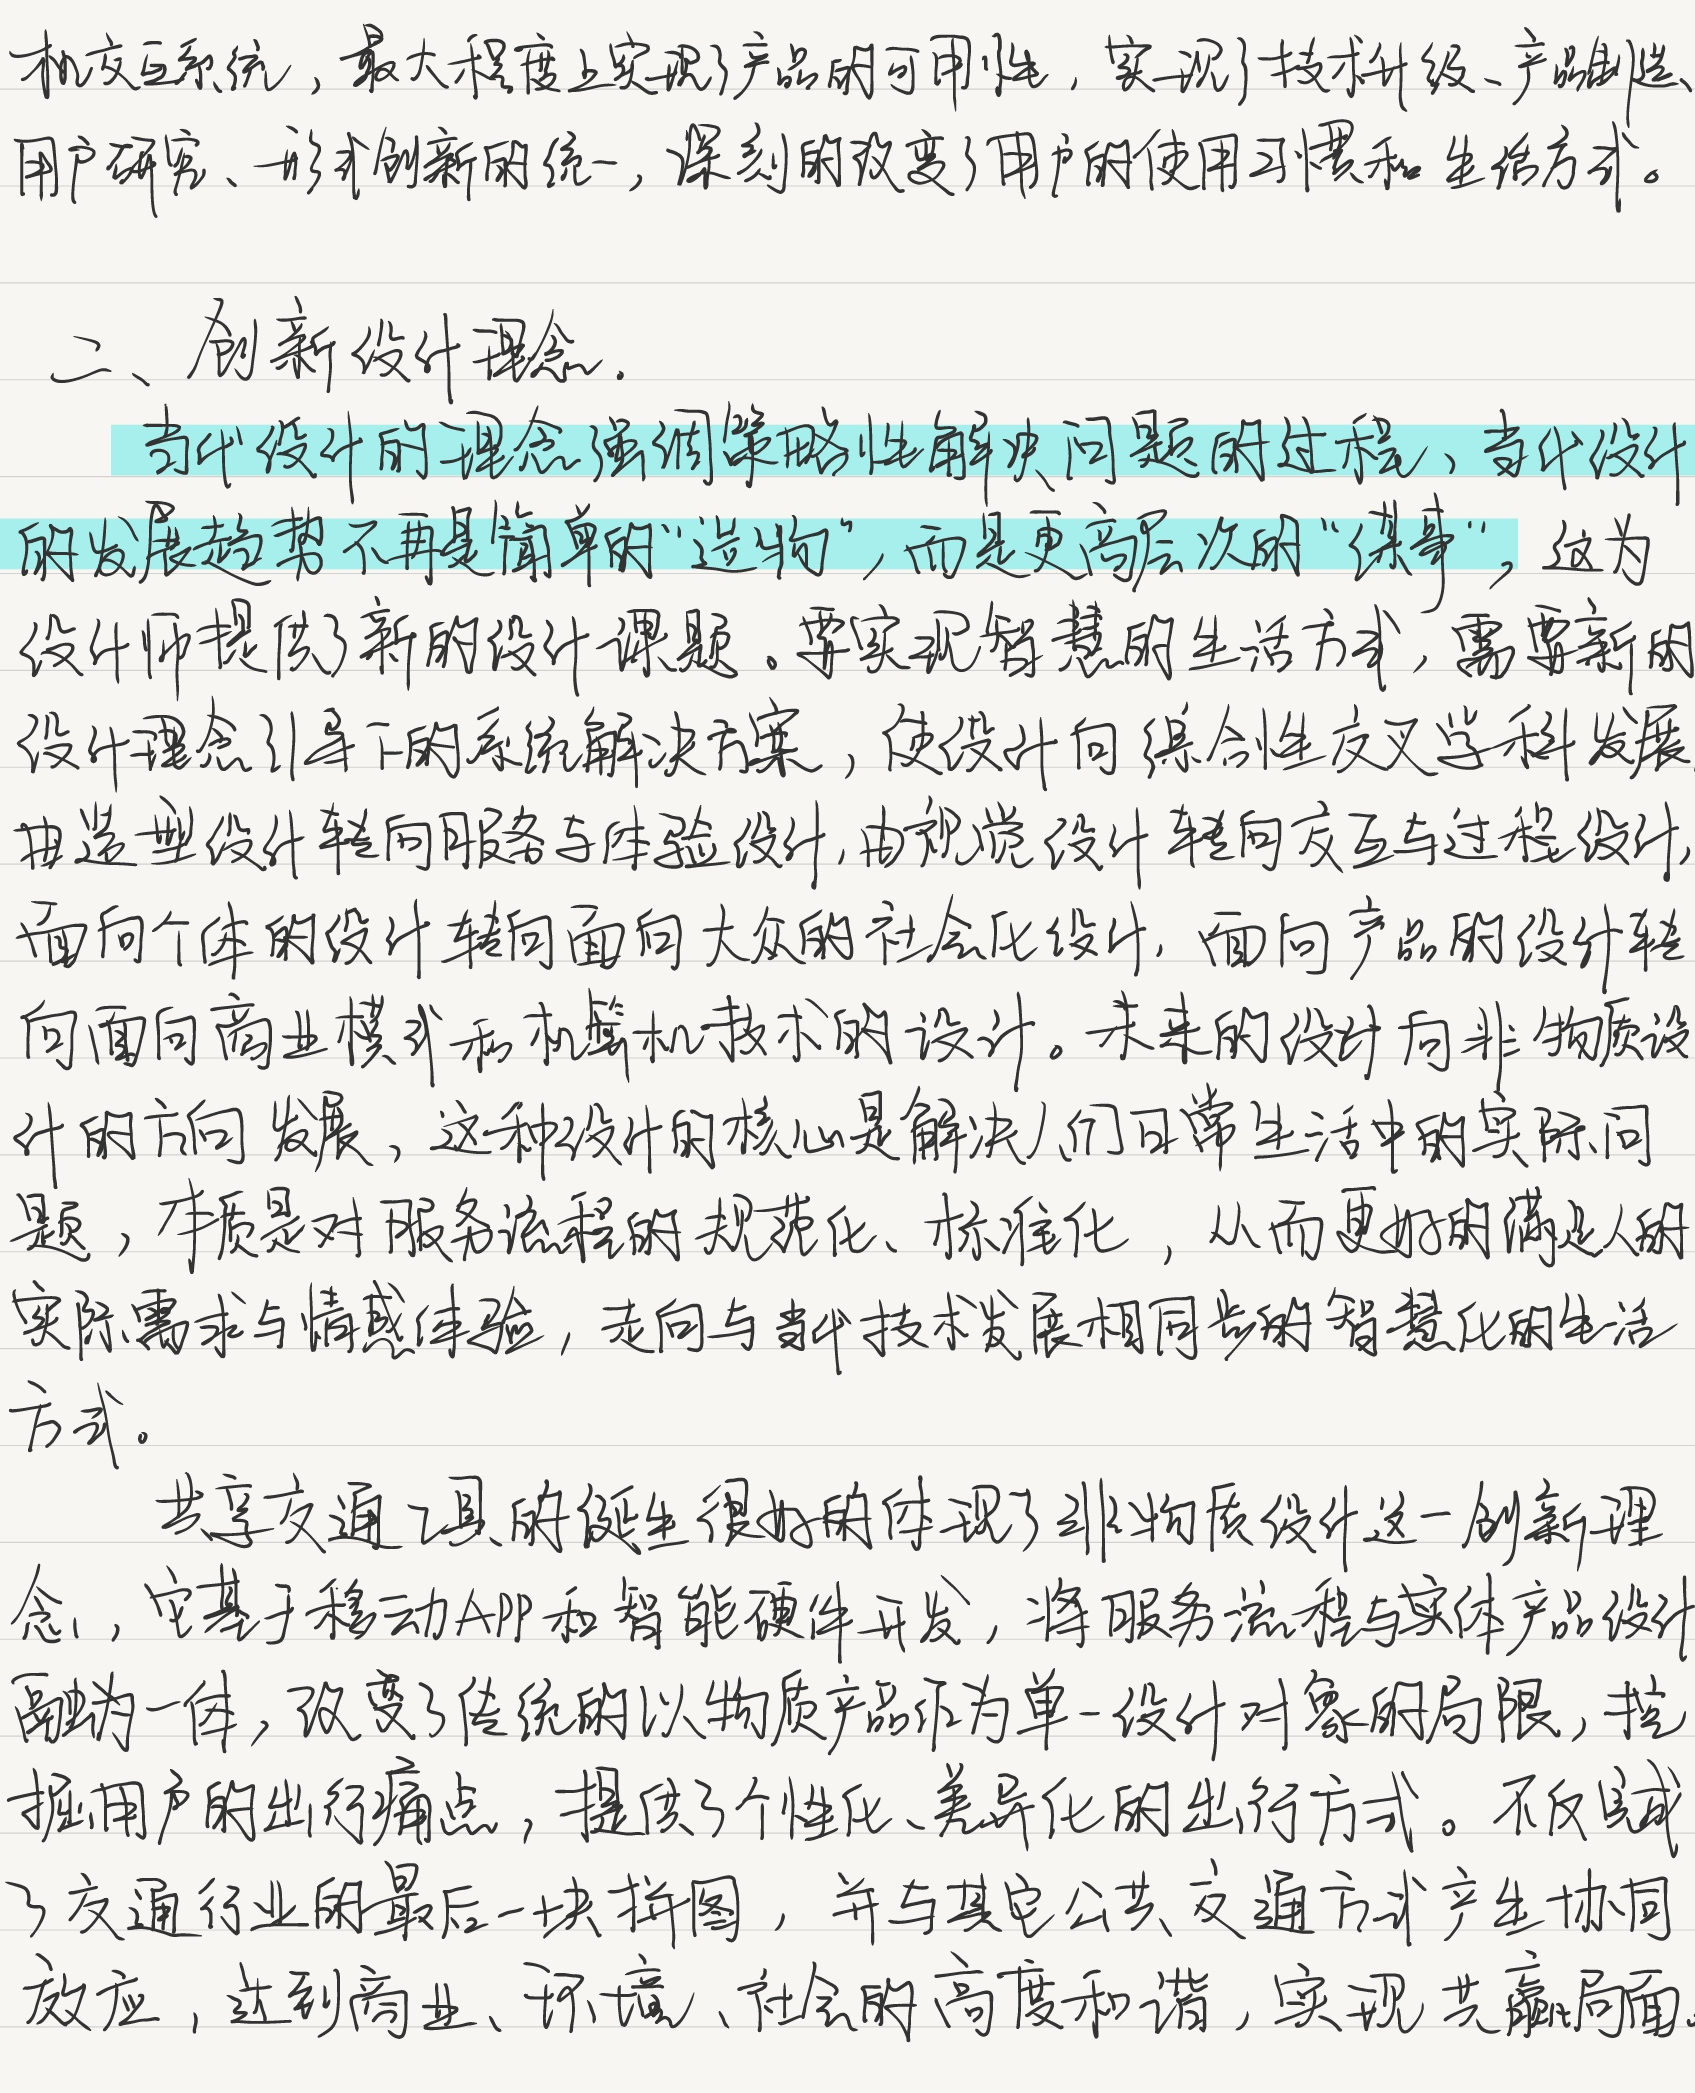 机交互系统，最大程度上实现了产品的可用性，实现了技术升级、产品制造、
用户研究、形式创新的统一，深刻的改变了用户的使用习惯和生活方式。
二、创新设计理念.
当代设计的理念强调策略性解决问题的过程、当代设计
的发展趋势不再是简单的“造物”，而是更高层次的“谋事”，这为
设计师提供了新的设计课题。要实现智慧的生活方式，需要新的
设计理念引导下的系统解决方案，使设计向综合性交叉学科发展.
由造型设计转向服务与体验设计,由视觉设计转向交互与过程设计,
面向个体的设计转向面向大众的社会化设计,面向产品的设计转
向面向商业模式和机算机技术的设计。未来的设计向非物质设
计的方向发展，这种设计的核心是解决人们日常生活中的实际问
题，本质是对服务流程的规范化、标准化，从而更好的满足人的
实际需求与情感体验，走向与当代技术发展相同步的智慧化的生活
方式。
共享交通工具的诞生很好的体现了非物质设计这一创新理
念，它基于移动APP和智能硬件开发，将服务流程与实体产品设计
融为一体，改变了传统的以物质产品作为单一设计对象的局限，挖
掘用户的出行痛点，提供了个性化、差异化的出行方式。不仅完成
了交通行业的最后一块拼图，并与其它公共交通方式产生协同
效应，达到商业、环境、社会的高度和谐，实现共赢局面。